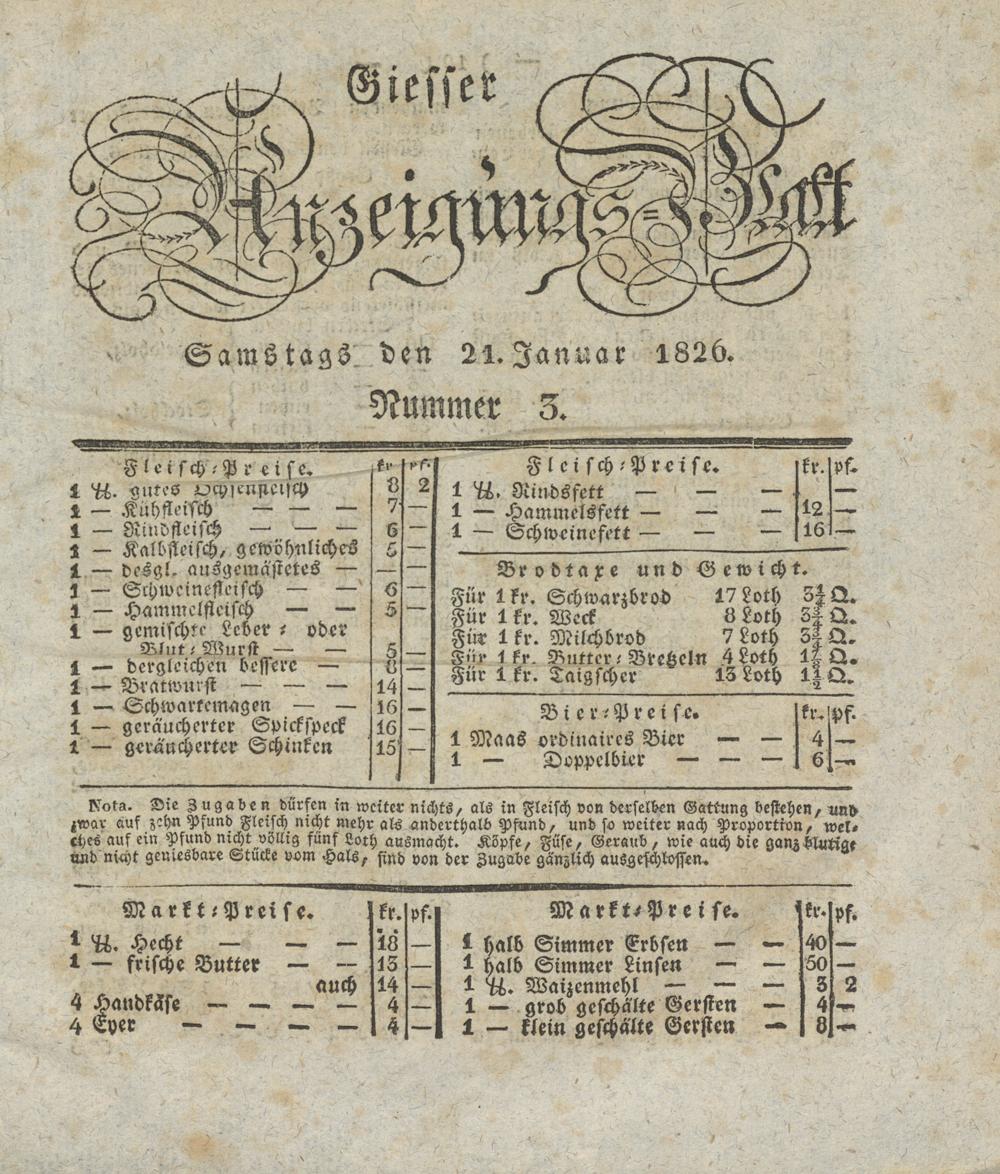 Giesser
Anzeigungs-Blatt
Samstags den 21. Januar 1826.
Nummer 3.
Fleisch-Preise. kr. pf.
1 ℔. gutes Ochsenfleisch 8 2
1 — Kühfleisch — — — 7 —
1 — Rindfleisch — — — 6 —
1 — Kalbfleisch, gewöhnliches 5 —
1 — desgl. ausgemästetes — — —
1 — Schweinefleisch — — 6 —
1 — Hammelfleisch — — 5 —
1 — gemischte Leber- oder
Blut-Wurst — — 5 —
1 — dergleichen bessere — 8 —
1 — Bratwurst — — — 14 —
1 — Schwartemagen — — 16 —
1 — geräucherter Spickspeck 16 —
1 — geräucherter Schinken 15 —
Fleisch-Preise. kr. pf.
1 ℔. Rindsfett — — — —
1 — Hammelsfett — — — 12 —
1 — Schweinefett — — — 16 —
Brodtaxe und Gewicht.
Für 1 kr. Schwarzbrod 17 Loth 3¼ Q.
Für 1 kr. Weck 8 Loth 3¾ Q.
Für 1 kr. Milchbrod 7 Loth 3¾ Q.
Für 1 kr. Butter-Bretzeln 4 Loth 1⅞ Q.
Für 1 kr. Taigscher 13 Loth 1½ Q.
Bier-Preise. kr. pf.
1 Maas ordinaires Bier — — 4 —
1 — Doppelbier — — — 6 —
Nota. Die Zugaben dürfen in weiter nichts, als in Fleisch von derselben Gattung bestehen, und
zwar auf zehn Pfund Fleisch nicht mehr als anderthalb Pfund, und so weiter nach Proportion, wel-
ches auf ein Pfund nicht völlig fünf Loth ausmacht. Köpfe, Füse, Geraub, wie auch die ganz blutige
und nicht geniesbare Stücke vom Hals, sind von der Zugabe gänzlich ausgeschlossen.
Markt-Preise. kr. pf.
1 ℔. Hecht — — — 18 —
1 — frische Butter — — 13 —
auch 14 —
4 Handkäse — — — — 4 —
4 Eyer — — — — — 4 —
Markt-Preise. kr. pf.
1 halb Simmer Erbsen — — 40 —
1 halb Simmer Linsen — — 50 —
1 ℔. Waizenmehl — — — 3 2
1 — grob geschälte Gersten — 4 —
1 — klein geschälte Gersten — 8 —